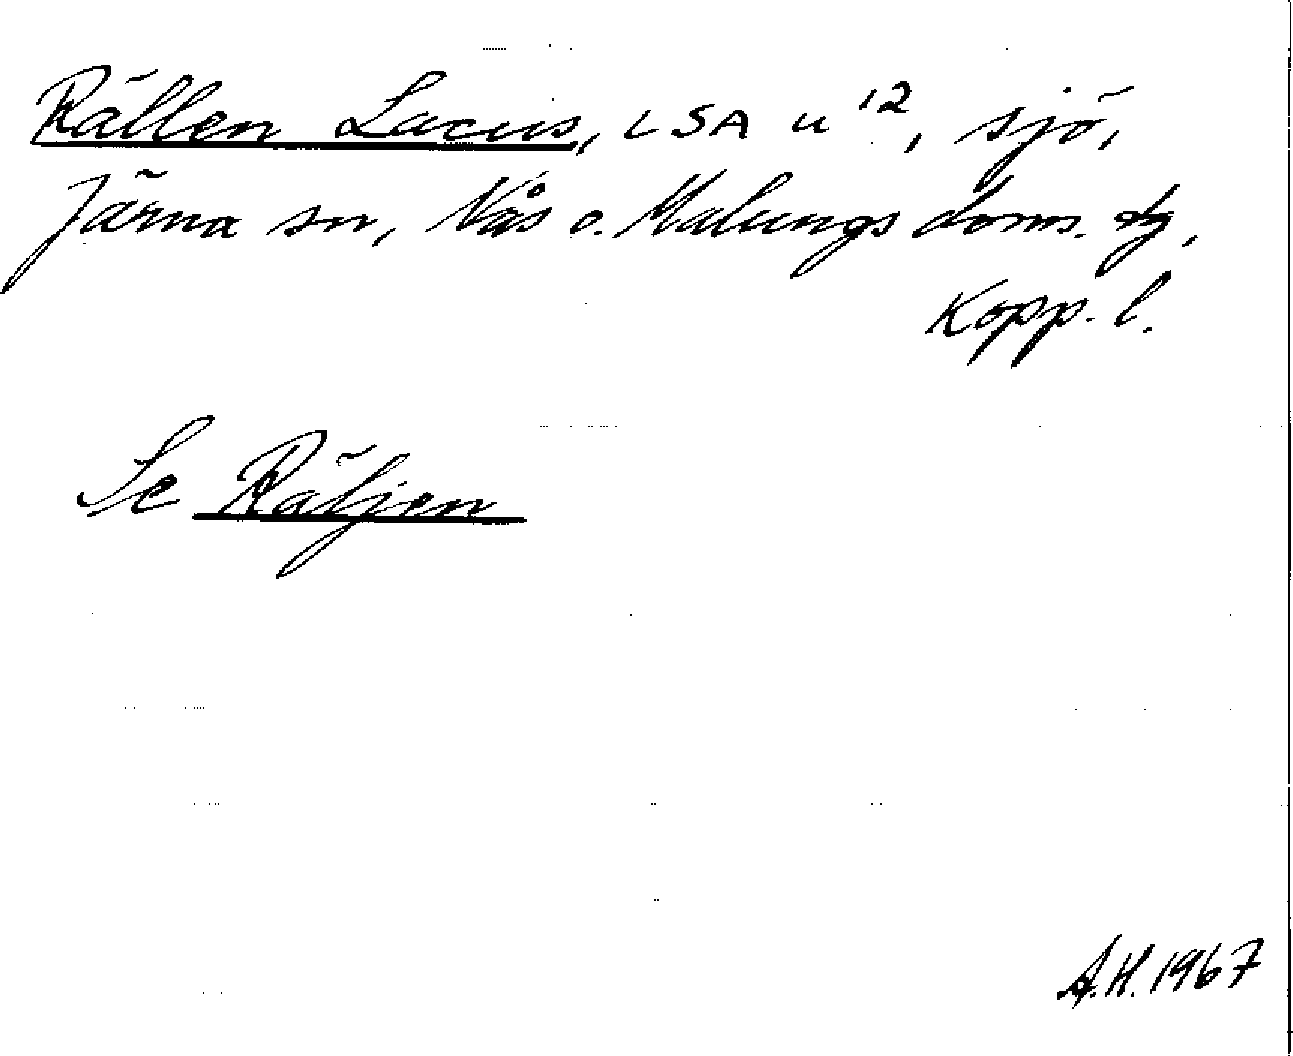 Rällen Lacus, LSA u 12, sjö,
Järna sn, Nås o. Malungs doms. tg,
Kopp. l.
Se Räljen
A.H. 1967